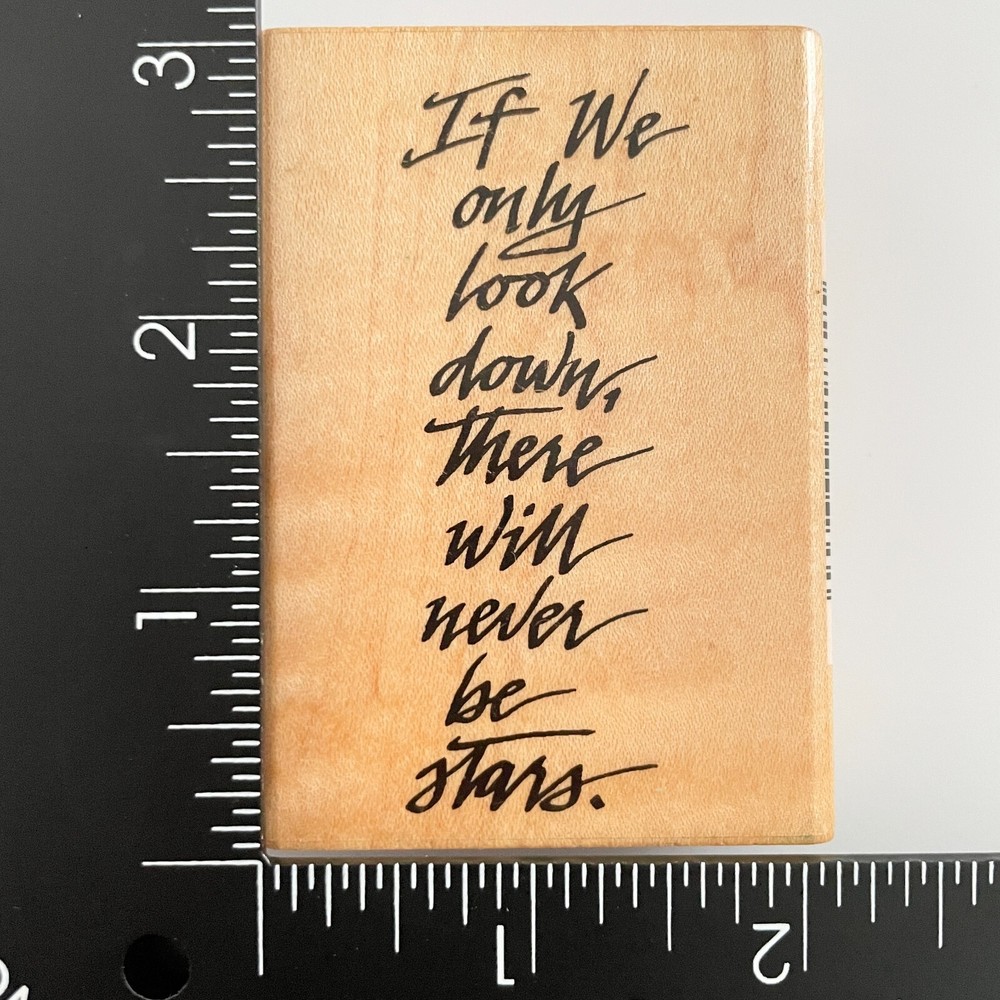 If We
only
look
down,
there
will
never
be
stars.
3
2
1
1
2